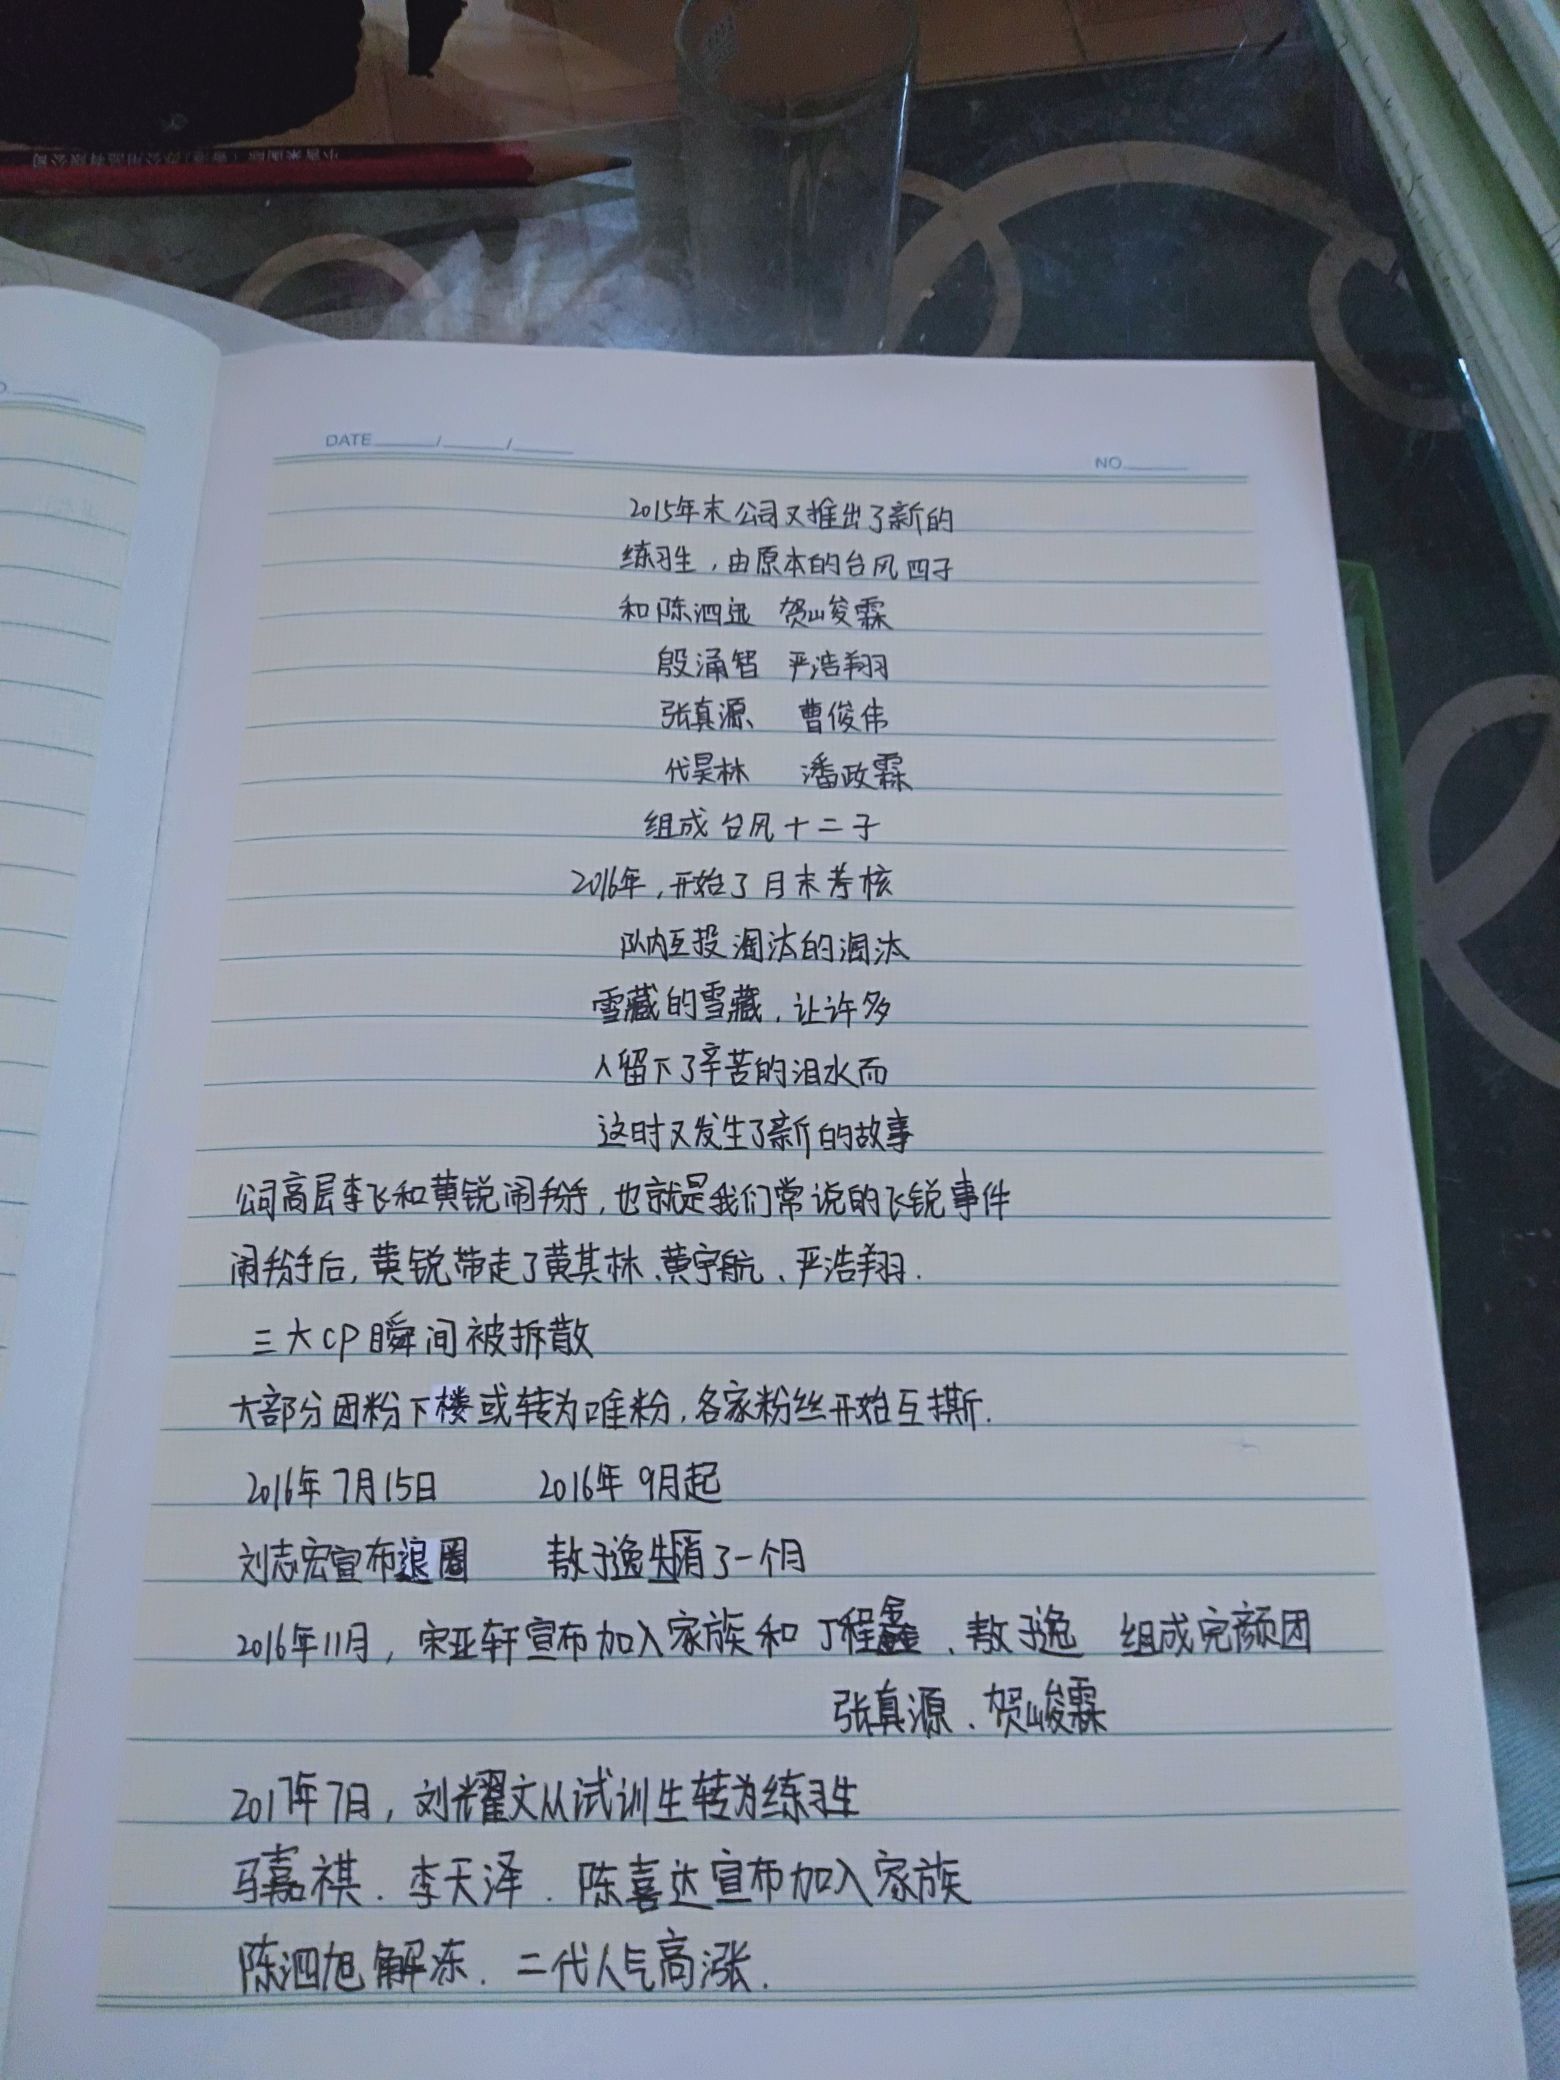 DATE / /
NO
2015年末公司又推出了新的
练习生,由原本的台风四子
和陈泗远 贺峻霖
殷涌智 严浩翔
张真源 曹俊伟
代昊林 潘政霖
组成台风十二子
2016年,开始了月末考核
队内互投淘汰的淘汰
雪藏的雪藏,让许多
人留下了辛苦的泪水而
这时又发生了新的故事
公司高层李飞和黄锐闹掰,也就是我们常说的飞锐事件
闹掰后,黄锐带走了黄其林、黄宇航、严浩翔.
三大CP瞬间被拆散
大部分团粉下楼或转为唯粉,各家粉丝开始互撕.
2016年7月15日 2016年9月起
刘志宏宣布退圈 敖子逸失消了一个月
2016年11月,宋亚轩宣布加入家族和丁程鑫、敖子逸 组成完颜团
张真源、贺峻霖
2017年7月,刘耀文从试训生转为练习生
马嘉祺.李天泽.陈喜达宣布加入家族
陈泗旭解冻.二代人气高涨.